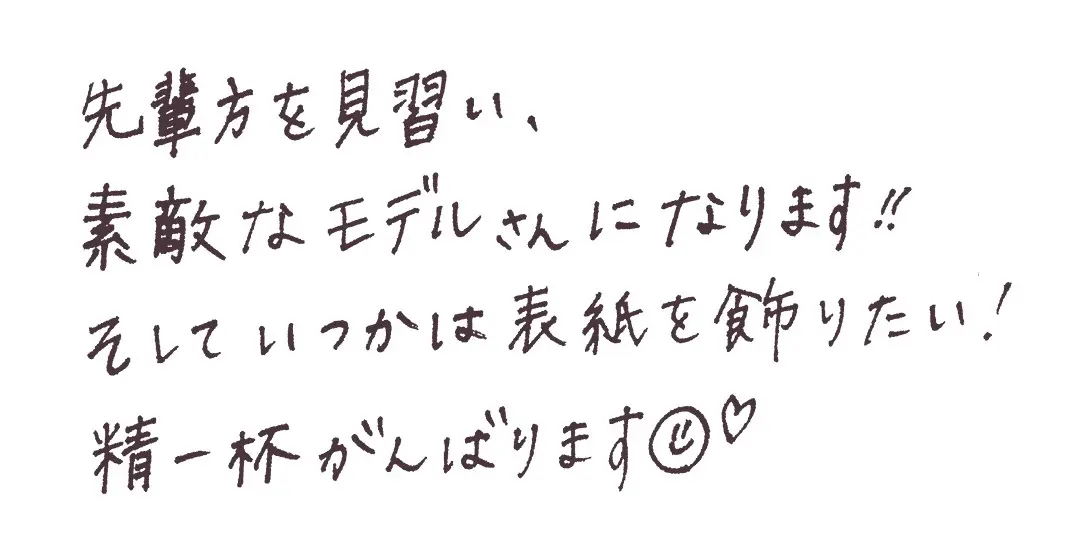 先輩方を見習い、
素敵なモデルさんになります!!
そしていつかは表紙を飾りたい!
精一杯がんばります☺♡